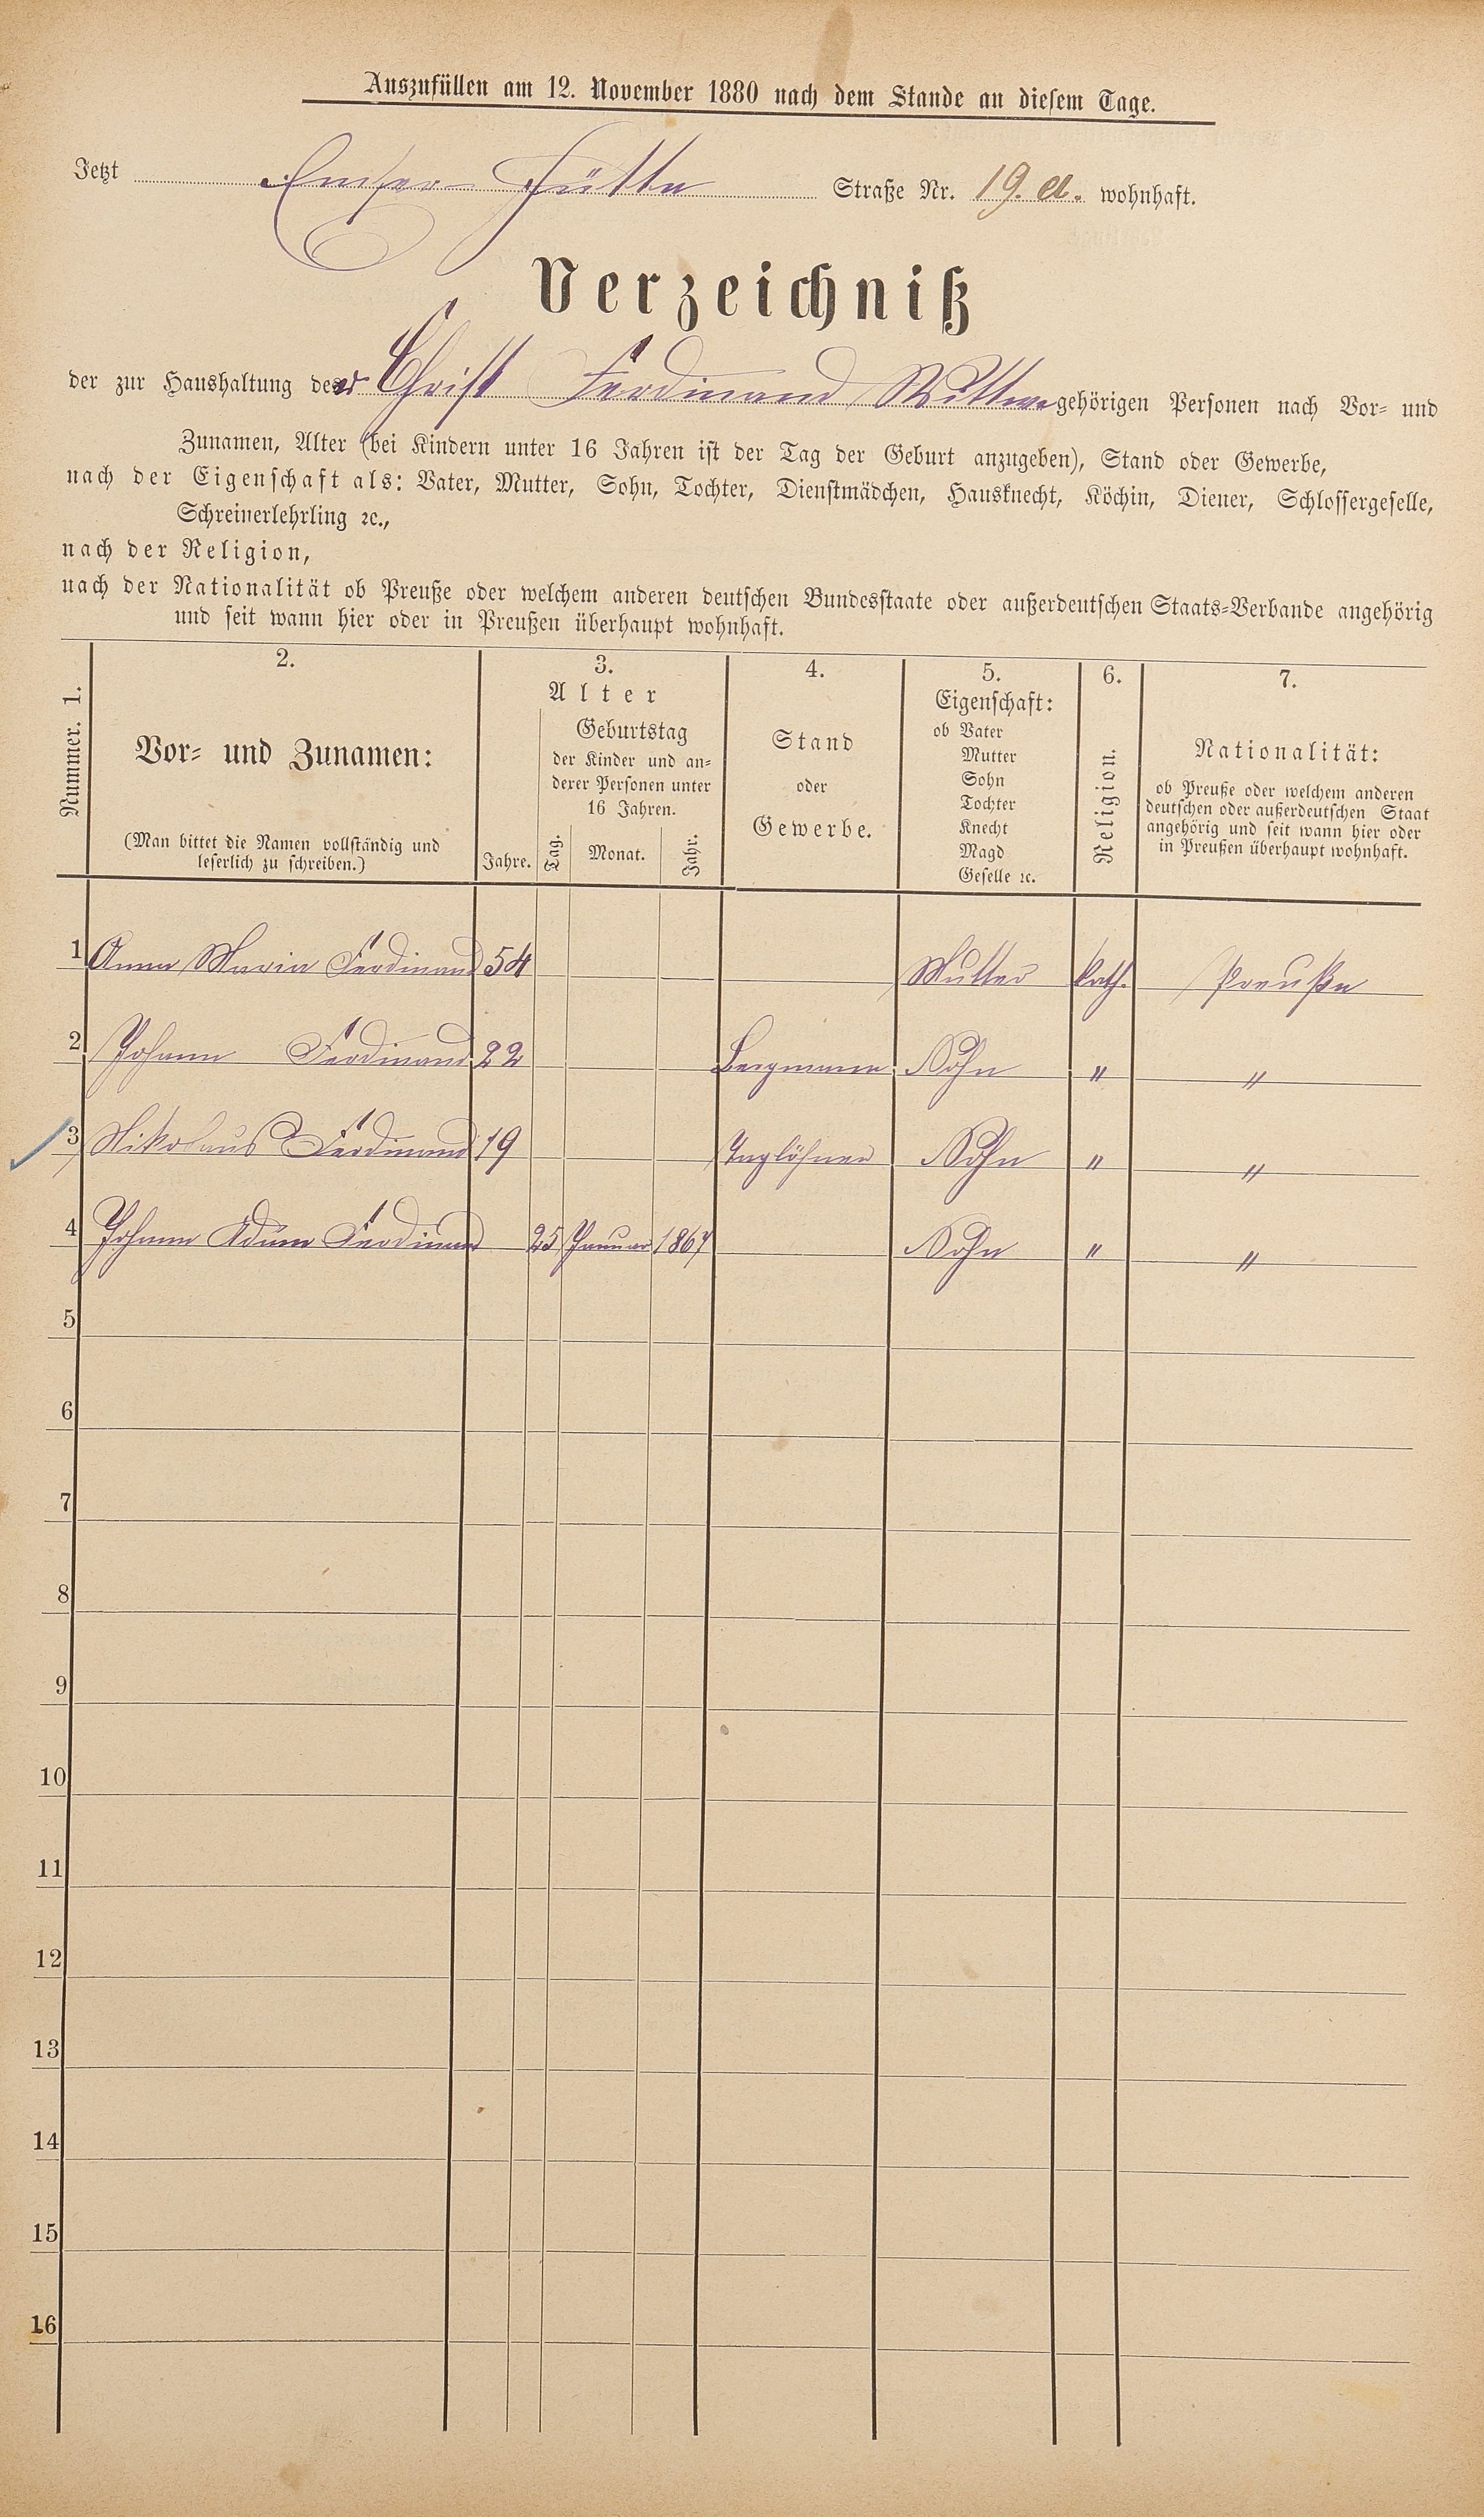 Auszufüllen am 12. November 1880 nach dem Stande an diesem Tage.
Jetzt Emser-Hütte Straße Nr. 19. a. wohnhaft.
Verzeichniß
der zur Haushaltung der Christ Ferdinand Wittwe gehörigen Personen nach Vor- und
Zunamen, Alter (bei Kindern unter 16 Jahren ist der Tag der Geburt anzugeben), Stand oder Gewerbe,
nach der Eigenschaft als: Vater, Mutter, Sohn, Tochter, Dienstmädchen, Hausknecht, Köchin, Diener, Schlossergeselle,
Schreinerlehrling ꝛc.,
nach der Religion,
nach der Nationalität ob Preuße oder welchem anderen deutschen Bundesstaate oder außerdeutschen Staats-Verbande angehörig
und seit wann hier oder in Preußen überhaupt wohnhaft.
Nummer. 1.
2.
Vor- und Zunamen:
(Man bittet die Namen vollständig und
leserlich zu schreiben.)
3.
Alter
Jahre.
Geburtstag
der Kinder und an-
derer Personen unter
16 Jahren.
Tag. Monat. Jahr.
4.
Stand
oder
Gewerbe.
5.
Eigenschaft:
ob Vater
Mutter
Sohn
Tochter
Knecht
Magd
Geselle ꝛc.
6.
Religion.
7.
Nationalität:
ob Preuße oder welchem anderen
deutschen oder außerdeutschen Staat
angehörig und seit wann hier oder
in Preußen überhaupt wohnhaft.
1 Anna Maria Ferdinand 54 Mutter kath. Preuße
2 Johann Ferdinand 22 Bergmann Sohn " "
3 Nikolaus Ferdinand 19 Taglöhner Sohn " "
4 Johann Adam Ferdinand 25 Januar 1867 Sohn " "
5
6
7
8
9
10
11
12
13
14
15
16